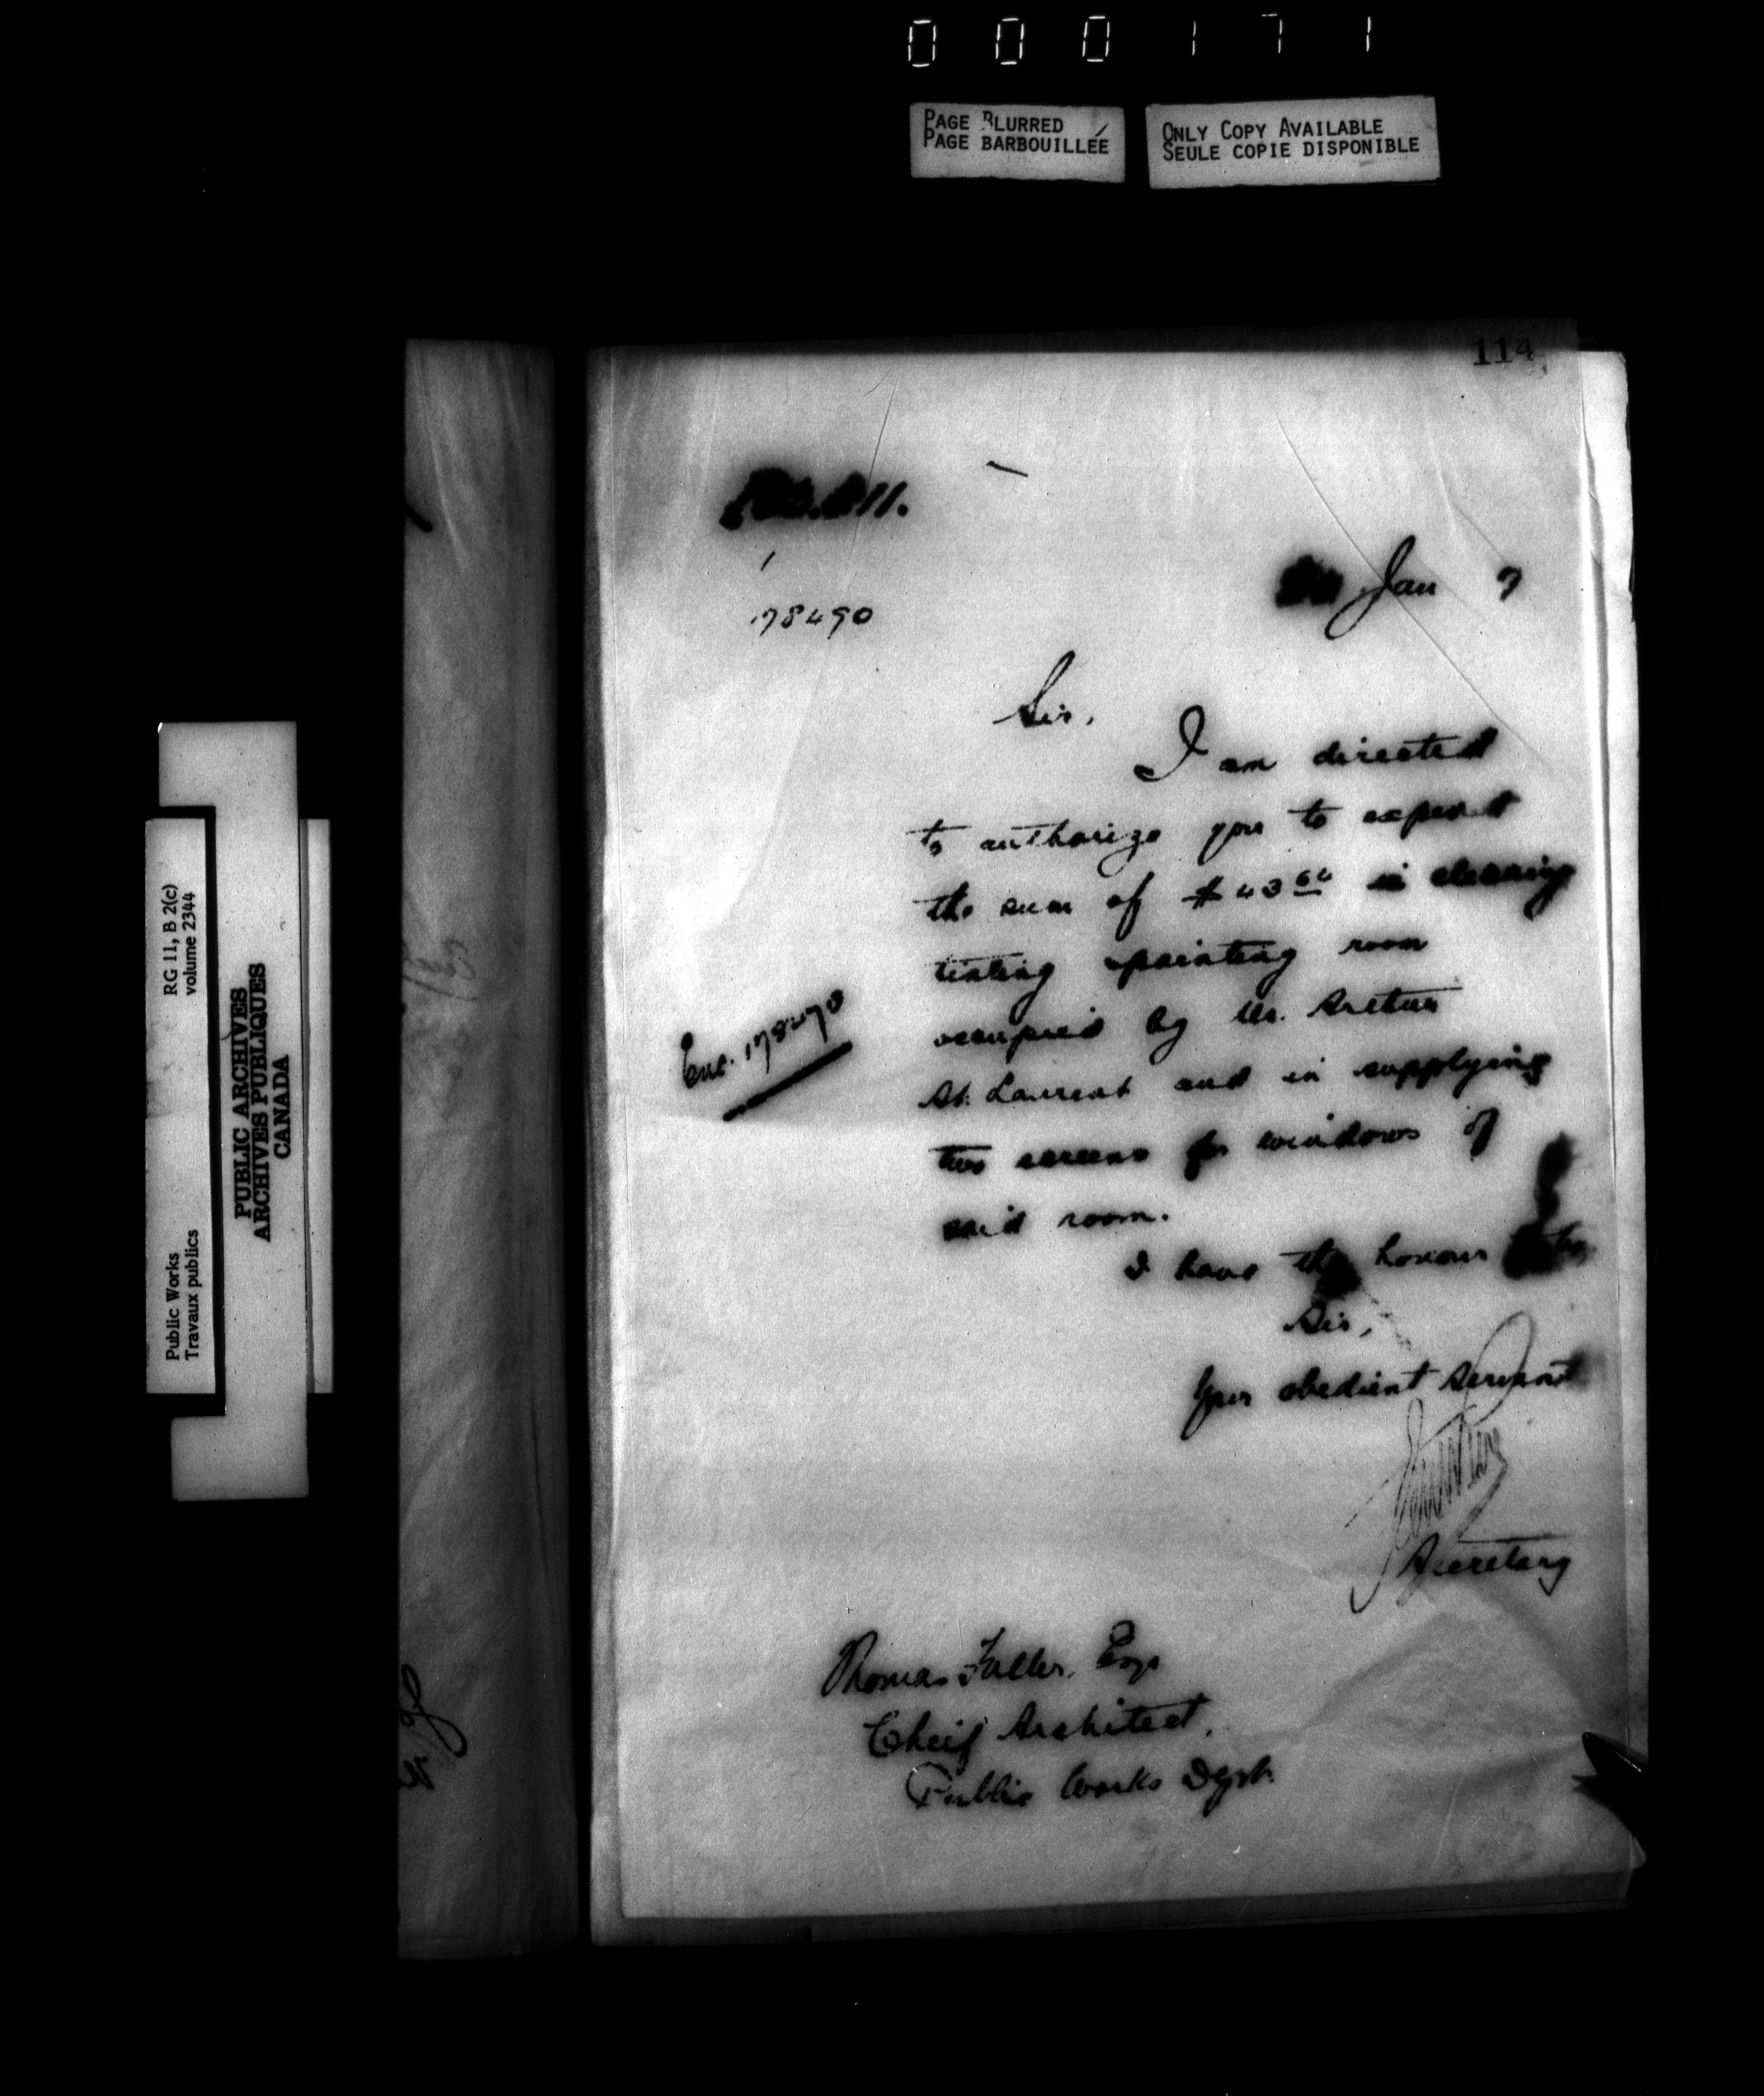 000171
PAGE BLURRED
PAGE BARBOUILLÉE
ONLY COPY AVAILABLE
SEULE COPIE DISPONIBLE
114
Jan 7
178490
Sir,
I am directed
to authorize you to expend
the sum of $43 64 in cleaning
tinting painting room
occupied by Mr. Arthur
St. Laurent and in supplying
two screens for windows of
said room.
Enc. 178490
I have the honour to be
Sir,
Your obedient servant
Secretary
Thomas Fuller, Esq
Cheif Architect,
Public Works Dept.
RG 11, B 2(c)
volume 2344
PUBLIC ARCHIVES
ARCHIVES PUBLIQUES
CANADA
Public Works
Travaux publics